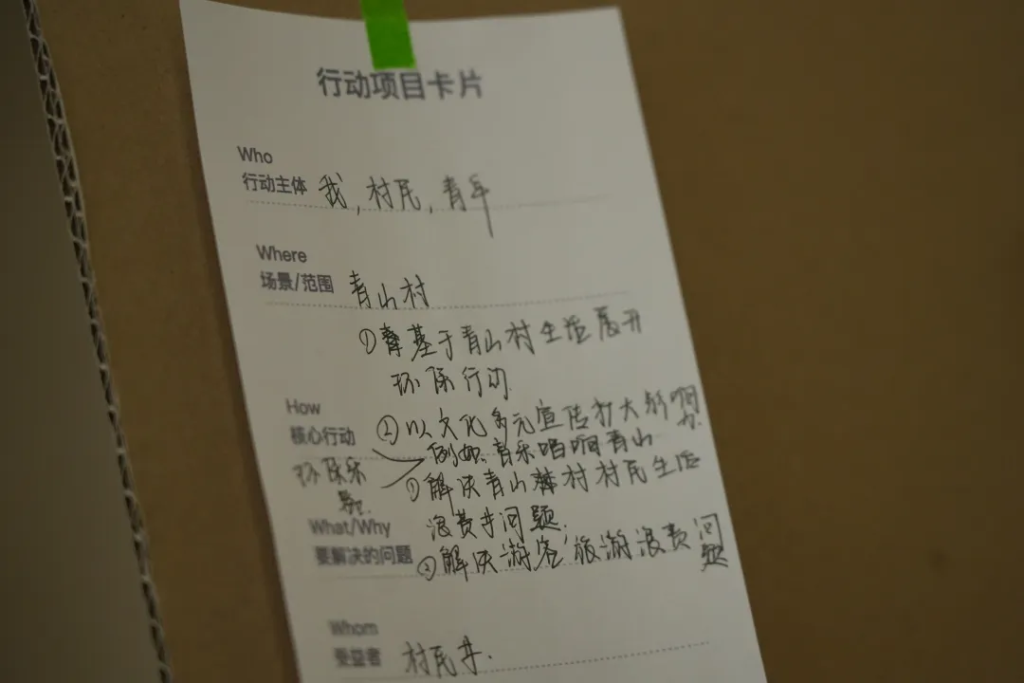 行动项目卡片
Who
行动主体 我,村民,青年
Where
场景/范围 青山村
①基于青山村生活展开
环保行动
How
核心行动 ②以文化多元宣传扩大影响力.
例如.音乐唱响青山
环保乐
①解决青山村村民生活
浪费水问题.
What/Why
要解决的问题 ②解决游客,旅游浪费问题
Whom
受益者 村民